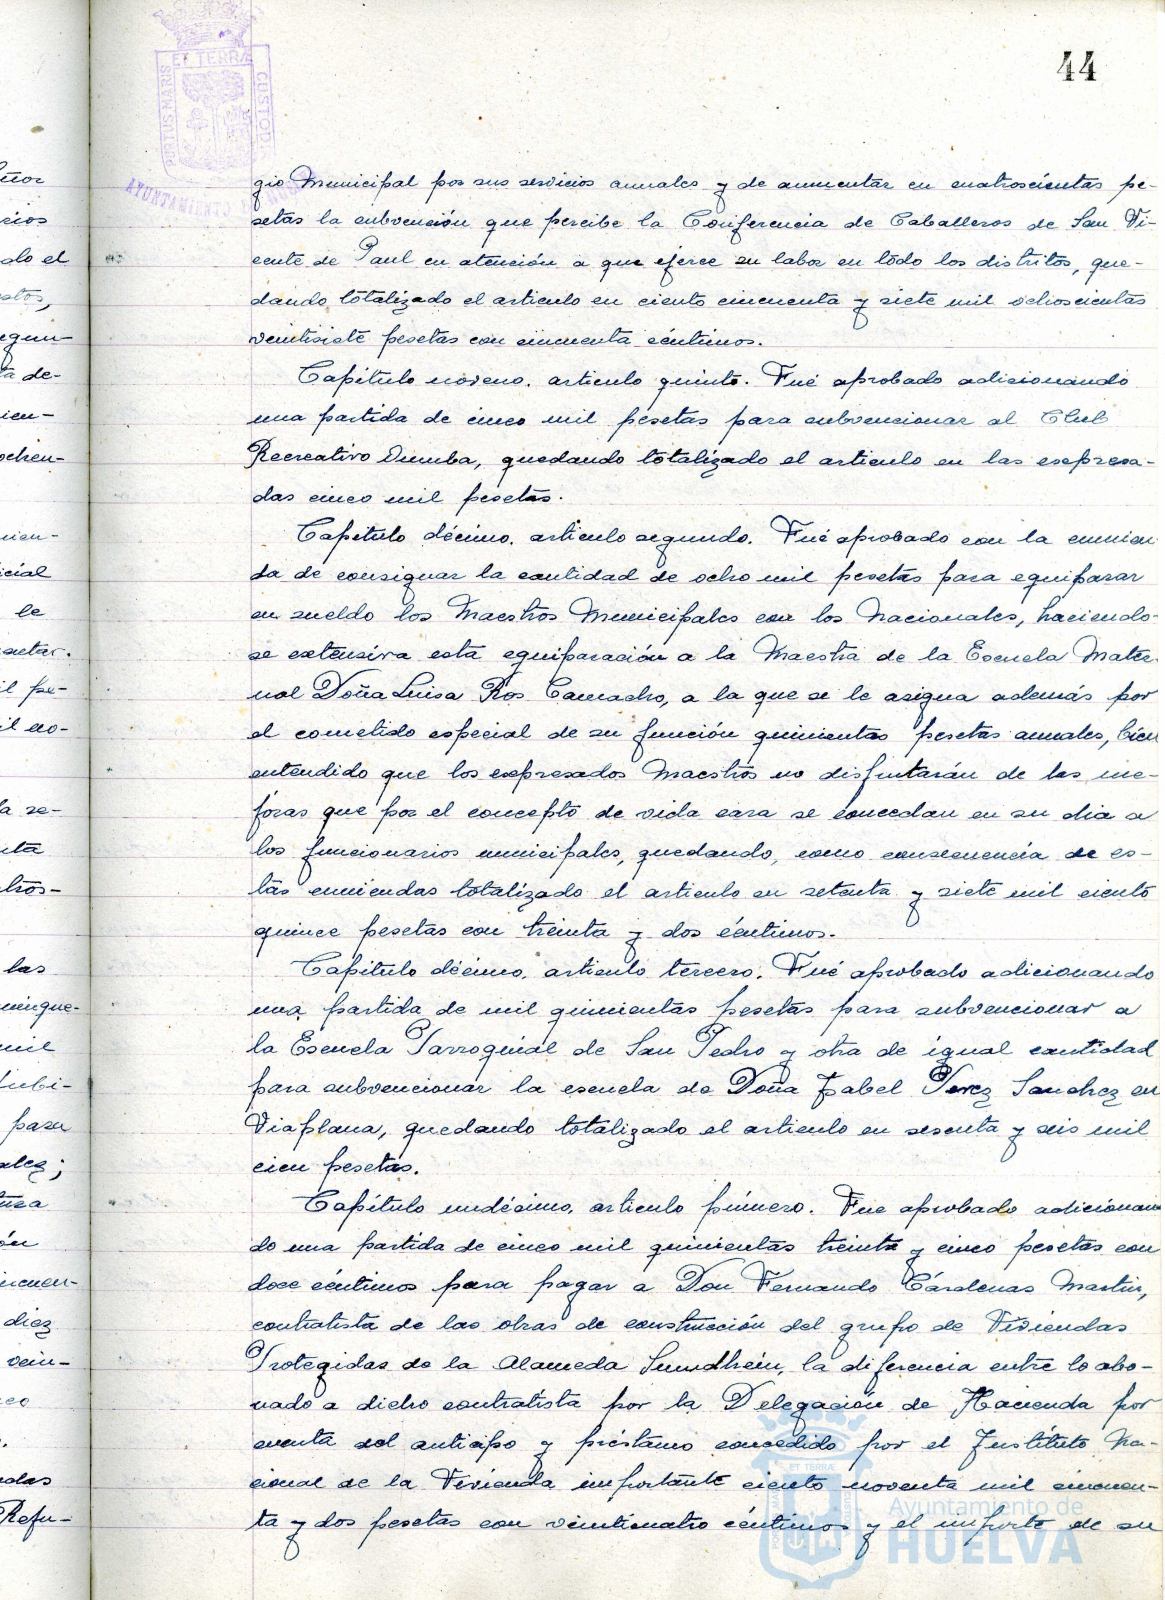 44
PORTUS MARIS ET TERRÆ CUSTODIA
AYUNTAMIENTO
gio Municipal por sus servicios anuales y de aumentar en cuatroscientas pe-
setas la subvención que percibe la Conferencia de Caballeros de San Vi-
cente de Paul en atención a que ejerce su labor en todo los distritos, que-
dando totalizado el articulo en ciento cincuenta y siete mil ochoscientas
veintisiete pesetas con cincuenta céntimos.
Capítulo noveno. articulo quinto. Fué aprobado adicionando
una partida de cinco mil pesetas para subvencionar al Club
Recreativo Onuba, quedando totalizado el articulo en las expresa-
das cinco mil pesetas.
Capitulo décimo. articulo segundo. Fué aprobado con la enmien
da de consignar la cantidad de ocho mil pesetas para equiparar
en sueldo los Maestros Municipales con los Nacionales, haciendo-
se extensiva esta equiparación a la Maestra de la Escuela Mater-
nal Doña Luisa Ros Camacho, a la que se le asigna además por
el cometido especial de su función quinientas pesetas anuales, bien
entendido que los expresados Maestros no disfrutarán de las me-
joras que por el concepto de vida cara se concedan en su dia a
los funcionarios municipales, quedando, como consecuencia de es-
tas enmiendas totalizado el articulo en setenta y siete mil ciento
quince pesetas con treinta y dos céntimos.
Capítulo décimo, articulo tercero. Fué aprobado adicionando
una partida de mil quinientas pesetas para subvencionar a
la Escuela Parroquial de San Pedro y otra de igual cantidad
para subvencionar la escuela de Doña Isabel Perez Sanchez en
Viaplana, quedando totalizado el articulo en sesenta y seis mil
cien pesetas.
Capítulo undécimo, articulo primero. Fue aprobado adicionan
do una partida de cinco mil quinientas treinta y cinco pesetas con
doce céntimos para pagar a Don Fernando Cárdenas Martin,
contratista de las obras de construcción del grupo de Viviendas
Protegidas de la Alameda Sundhein, la diferencia entre lo abo-
nado a dicho contratista por la Delegación de Hacienda por
cuenta del anticipo y préstamo concedido por el Instituto Na-
cional de la Vivienda importante ciento noventa mil cincuen-
ta y dos pesetas con veinticuatro céntimos y el importe de su
Ayuntamiento de
HUELVA